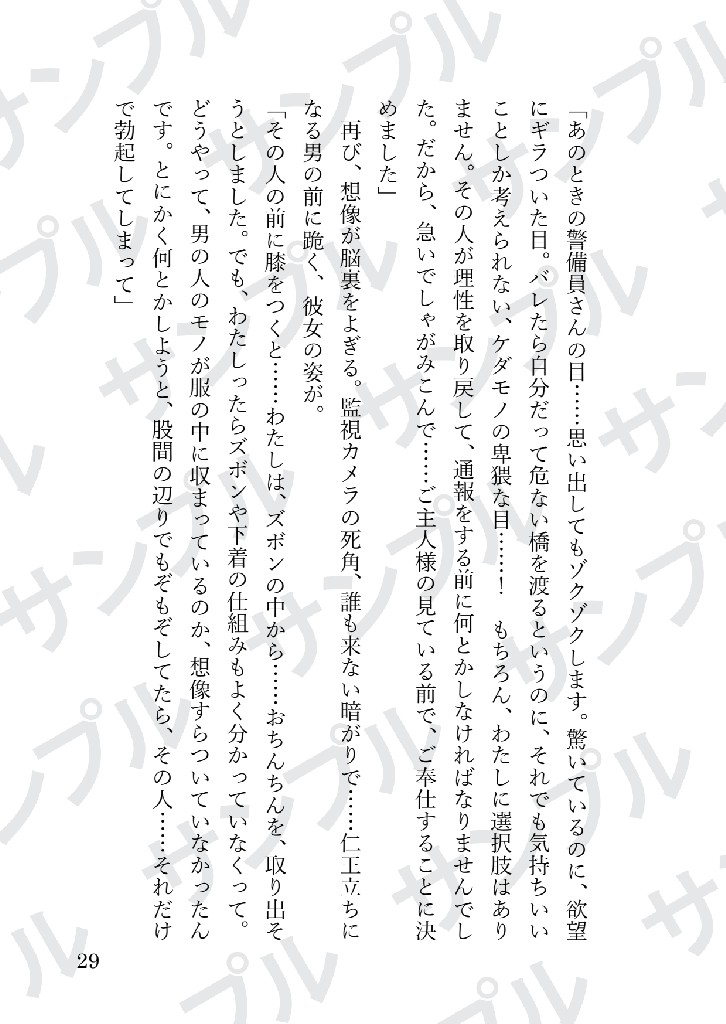 「あのときの警備員さんの目……思い出してもゾクゾクします。驚いているのに、欲望
にギラついた目。バレたら自分だって危ない橋を渡るというのに、それでも気持ちいい
ことしか考えられない、ケダモノの卑猥な目……！　もちろん、わたしに選択肢はあり
ません。その人が理性を取り戻して、通報をする前に何とかしなければなりませんでし
た。だから、急いでしゃがみこんで……ご主人様の見ている前で、ご奉仕することに決
めました」
　再び、想像が脳裏をよぎる。監視カメラの死角、誰も来ない暗がりで……仁王立ちに
なる男の前に跪く、彼女の姿が。
「その人の前に膝をつくと……わたしは、ズボンの中から……おちんちんを、取り出そ
うとしました。でも、わたしったらズボンや下着の仕組みもよく分かっていなくって。
どうやって、男の人のモノが服の中に収まっているのか、想像すらついていなかったん
です。とにかく何とかしようと、股間の辺りでもぞもぞしてたら、その人……それだけ
で勃起してしまって」
29
サンプル